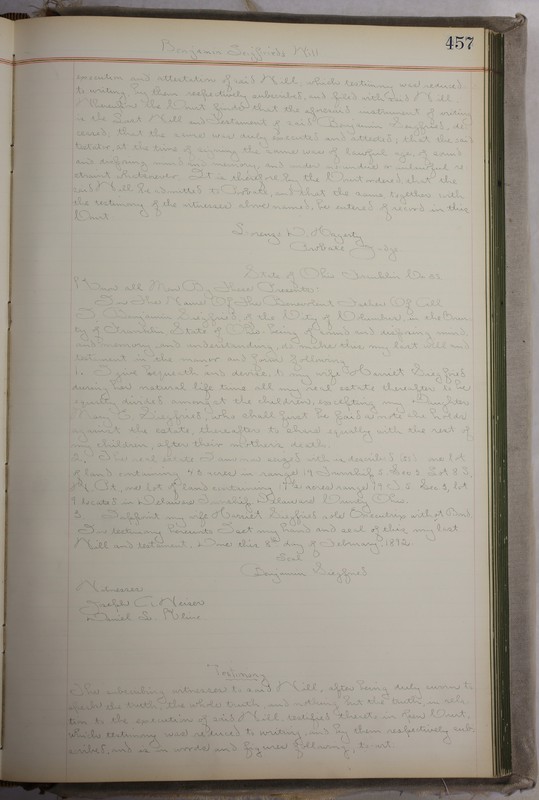 457
Benjamin Siegfrieds Will
execution and attestation of said Will, which testimony was reduced
to writing, by them respectively subscribed, and filed with said Will.
Whereupon the Court finds that the aforesaid instrument of writing
is the Last Will and Testament of said Benjamin Siegfried, de-
ceased, that the same was duly executed and attested, that the said
testator, at the time of signing the same was of lawful age, of sound
and disposing mind and memory, and under no undue or unlawful re-
straint whatsoever. It is therefore by the Court ordered that the
said Will be admitted to Probate, and that the same, together with
the testimony of the witnesses above named, be entered of record in this
Court.
Lorenzo D. Hagerty
Probate Judge
State of Ohio Franklin Co. ss.
Know all Men By These Presents:
In The Name Of The Benevolent Father Of All
I, Benjamin Siegfried of the City of Columbus, in the Coun-
ty of Franklin State of Ohio being of sound and disposing mind
and memory, and understanding, do make this my last will and
testament in the manor and form following.
1. I give bequeath and devise to my wife Harriet Siegfried
during her natural life time all my real estate thereafter to be
equally divided among all the children, excepting my daughter
Mary E. Siegfried, who shall first be paid a note she holds
against the estate, thereafter to share equally with the rest of
my children, after their mothers death.
2. The real estate I am now seized with is described
of land containing 23 acres in range 19 Township 5 Sec 3 Lot 8
located in Delaware Township Delaware County Ohio.
3. I appoint my wife Harriet Siegfried sole Executrix without Bond
In testimony hereunto I set my hand and seal of this my last
Will and testament. Done this 8th day of February 1892.
Seal
Benjamin Siegfried
Witnesses
Joseph C.
Daniel S.
Testimony
The subscribing witnesses to said Will, after being duly sworn to
speak the truth, the whole truth, and nothing but the truth, in rela-
tion to the execution of said Will, testified thereto in open Court,
which testimony was reduced to writing, and by them respectively sub-
scribed, and is in words and figures following, to wit: